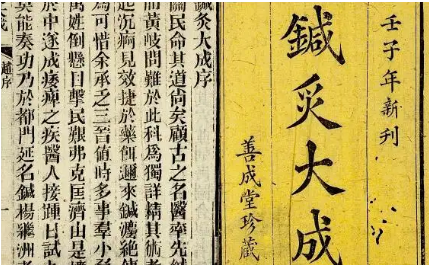 壬子年新刊
鍼灸大成
善成堂珍藏
鍼灸大成序
關民命其道尚矣顧古之名醫率先鍼
而黃岐問難於此科爲獨詳精其術者
起沉疴見效捷於藥餌邇來鍼灋絕
爲可惜余承乏三晉值時多事羣小
萬姓倒懸目擊民艱弗克匡濟由是
於中遂成痿痺之疾醫人接踵日試
莫能奏功乃於都門延名鍼楊繼洲
趙序